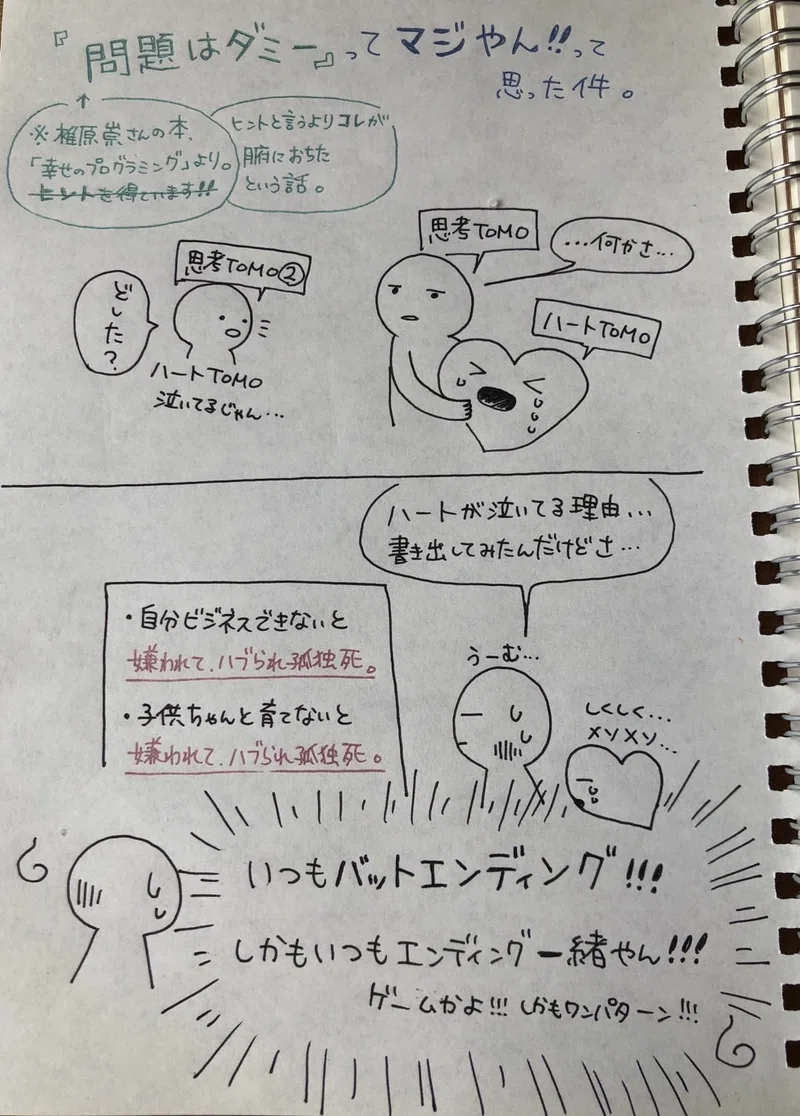 『問題はダミー』ってマジやん!!って
思った件。
↑
※椎原崇さんの本、
「幸せのプログラミング」より。
ヒントを得ています!!
ヒントと言うよりコレが
腑におちた
という話。
思考TOMO②
どした?
ハートTOMO
泣いてるじゃん…
思考TOMO
…何かさ…
ハートTOMO
ハートが泣いてる理由…
書き出してみたんだけどさ…
・自分ビジネスできないと
嫌われて、ハブられ孤独死。
・子供ちゃんと育てないと
嫌われて、ハブられ孤独死。
うーむ…
しくしく…
メソメソ…
いつもバットエンディング!!!
しかもいつもエンディング一緒やん!!!
ゲームかよ!!! しかもワンパターン!!!